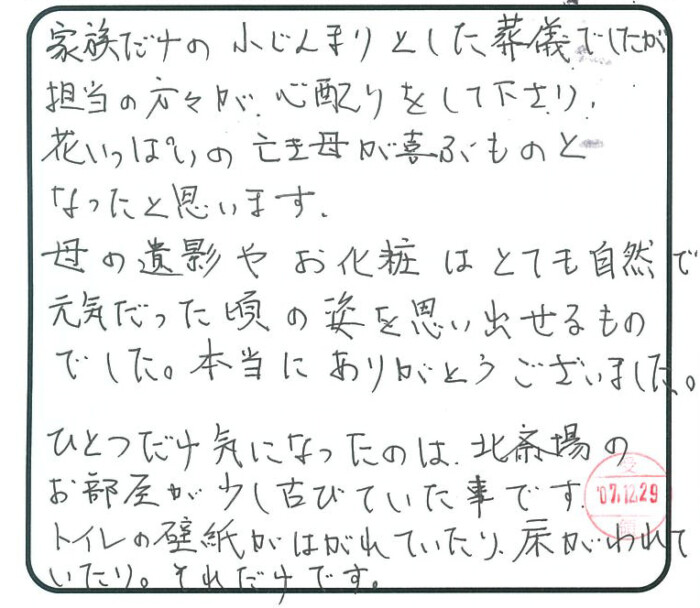 家族だけの小じんまりとした葬儀でしたが
担当の方々が、心配りをして下さり、
花いっぱいの亡き母が喜ぶものと
なったと思います。
母の遺影やお化粧はとても自然で
元気だった頃の姿を思い出せるもの
でした。本当にありがとうございました。
ひとつだけ気になったのは、北斎場の
お部屋が少し古びていた事です。
トイレの壁紙がはがれていたり、床がわれて
いたり。それだけです。
受
'07.12.29